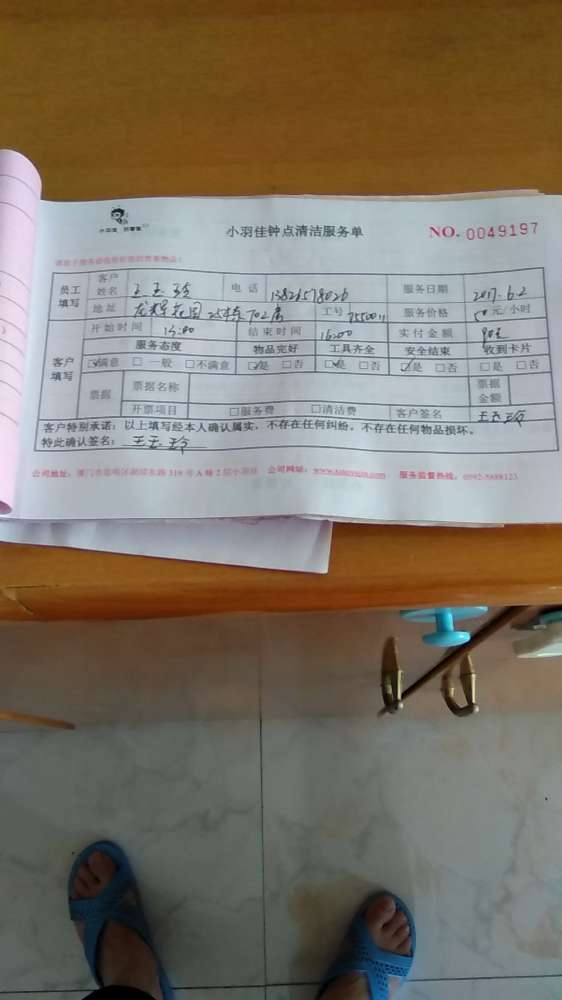 小羽佳钟点清洁服务单 NO. 0049197
员工填写 客户姓名 王玉玲 电话 服务日期 2017.6.2
地址 龙辉花园 25栋 702房 工号 服务价格 50元/小时
客户填写 开始时间 结束时间 16:00 实付金额
服务态度 物品完好 工具齐全 安全结束 收到卡片
☑满意 □一般 □不满意 ☑是 □否 ☑是 □否 ☑是 □否 □是 □否
票据 票据名称 票据金额
开票项目 □服务费 □清洁费 客户签名 王玉玲
客户特别承诺：以上填写经本人确认属实，不存在任何纠纷。不存在任何物品损坏。
特此确认签名： 王玉玲
公司地址： 公司网站： 服务监督热线：